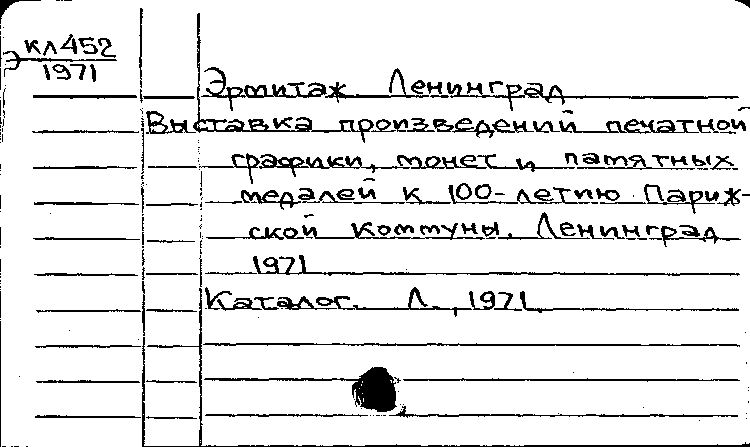 кл452
Э 1971
Эрмитаж. Ленинград
Выставка произведений печатной
графики, монет и памятных
медалей к 100-летию Париж-
ской Коммуны. Ленинград
1971
Каталог. Л., 1971.